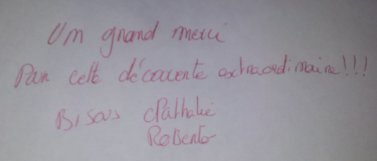 Un grand merci
Par cette découverte extraordinaire!!!
Bisous Nathalie
Roberto